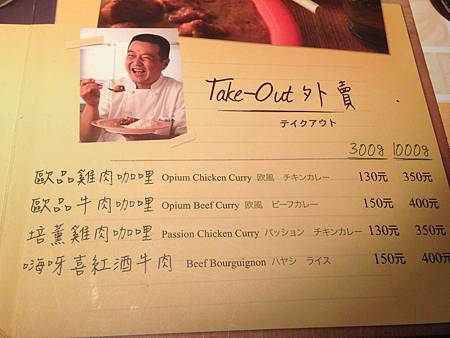 Take-Out 外賣
テイクアウト
300g 1000g
歐品雞肉咖哩 Opium Chicken Curry 欧風 チキンカレー 130元 350元
歐品牛肉咖哩 Opium Beef Curry 欧風 ビーフカレー 150元 400元
培薰雞肉咖哩 Passion Chicken Curry パッション チキンカレー 130元 350元
嗨呀喜紅酒牛肉 Beef Bourguignon ハヤシ ライス 150元 400元